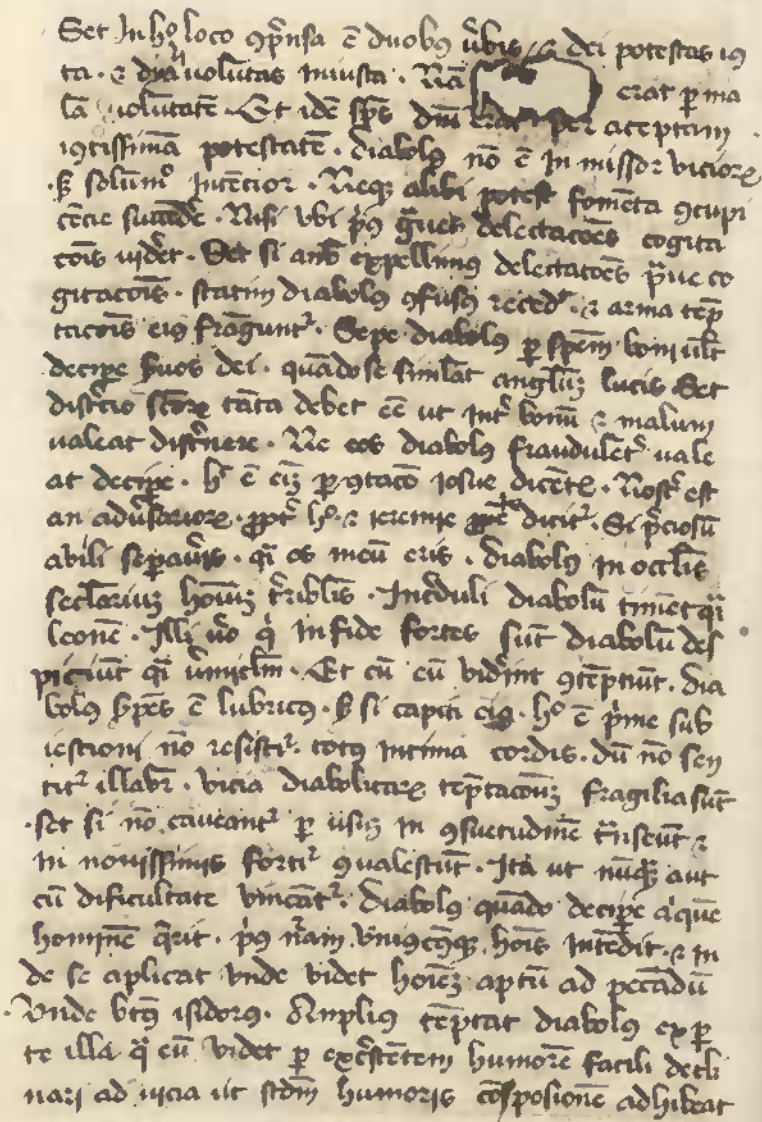 Set In hº loco ꝯp̄nsa ē duobꝯ ūbis ⁊ dei potestas iꝯ
ta · ⁊ uolūtas iniusta · Nā erat ꝑ ma
lā uolūtatē · Et idē sp̄s dn̄i erat ꝑ aceptam
iꝯtissimā potestatē · diabolꝯ nō ē In missor vicioꝝ
· ꝫ solūmº Intēcior · Neqꝫ alibi potest fomēta ꝯcupi
cēcie succēde᷒ · Nisi vbi pꝰ delectacoēs cogita
cōis uidet · Set si anb expellimꝯ delectacoēs p̄ue co
gitacōis · statim diabolꝯ ꝯfusꝯ reced᷒ · ⁊ arma tēp
tacōis eiꝯ frāgunt᷒ · Sepe diabolꝯ ꝑ spēm boni ult
decipe s̄uos dei · quādo se simlāt anglūꝫ lucis Set
disc̄cio sc̄oꝝ tāta debet eē ut Int᷒ bonū ⁊ malum
ualeat disc̄nere · Ne eos diabolꝯ fraudulēt᷒ uale
at decipe · h̄ ē eiꝫ ꝯtacō iosue dicētꝭ · Nost᷒ est
an adūsarioꝝ · ꝓpt᷒ hº · ⁊ ieremie dicit᷒ · Si p̄ciosū
a bili sepauīs · qi os meū eris · diabolꝯ in occl̄is
secl̄ariuꝫ hoīuꝫ t̄riblis · Inc̄duli diabolū timēt qi
leonē · Illi ūo q̄ in fide fortes sūt diabolū des
piciūt qi ūmicl̄m · Et cū eū vid̄int ꝯtēpnūt · dia
bolꝯ s̄pēs ē lubricꝯ · ꝫ si capiti eiꝯ · hº ē p̄me sub
iestioni nō resistit᷒ · totꝯ Intima cordis · dū nō sen
tit᷒ illabr̄ · vicia diabolicaꝝ tēptacoūꝫ fragilia sūt
· set si nō caueant᷒ ꝑ usiꝫ in ꝯsuetudinē t̄nseūt ⁊
In nouissimis forti᷒ ꝯualescūt · Ita ut nūqꝫ aut
cū dificultate vincāt᷒ · Diabolꝯ quādo decipe aꝯquē
hominē q̄rit · pꝰ nāam vniuscꝯqꝫ hoīs Intēdit · ⁊ in
de se aplicat vnde videt hoīeꝫ aptū ad peccādū
· Vnde btꝯ isidorꝯ · Ampliꝯ tēptat diabolꝯ ex ꝑ
te illa q̄ eū videt ꝑ exc̄stētem humorē facili decli
nari ad uicia ut scd̄m humoris cōposionē adhibeat